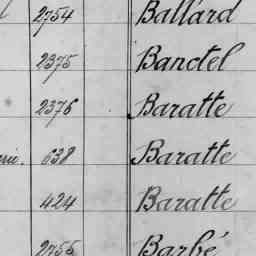 2754 Ballard
2375 Banctel
2376 Baratte
rie. 638 Baratte
424 Baratte
2756 Barbé